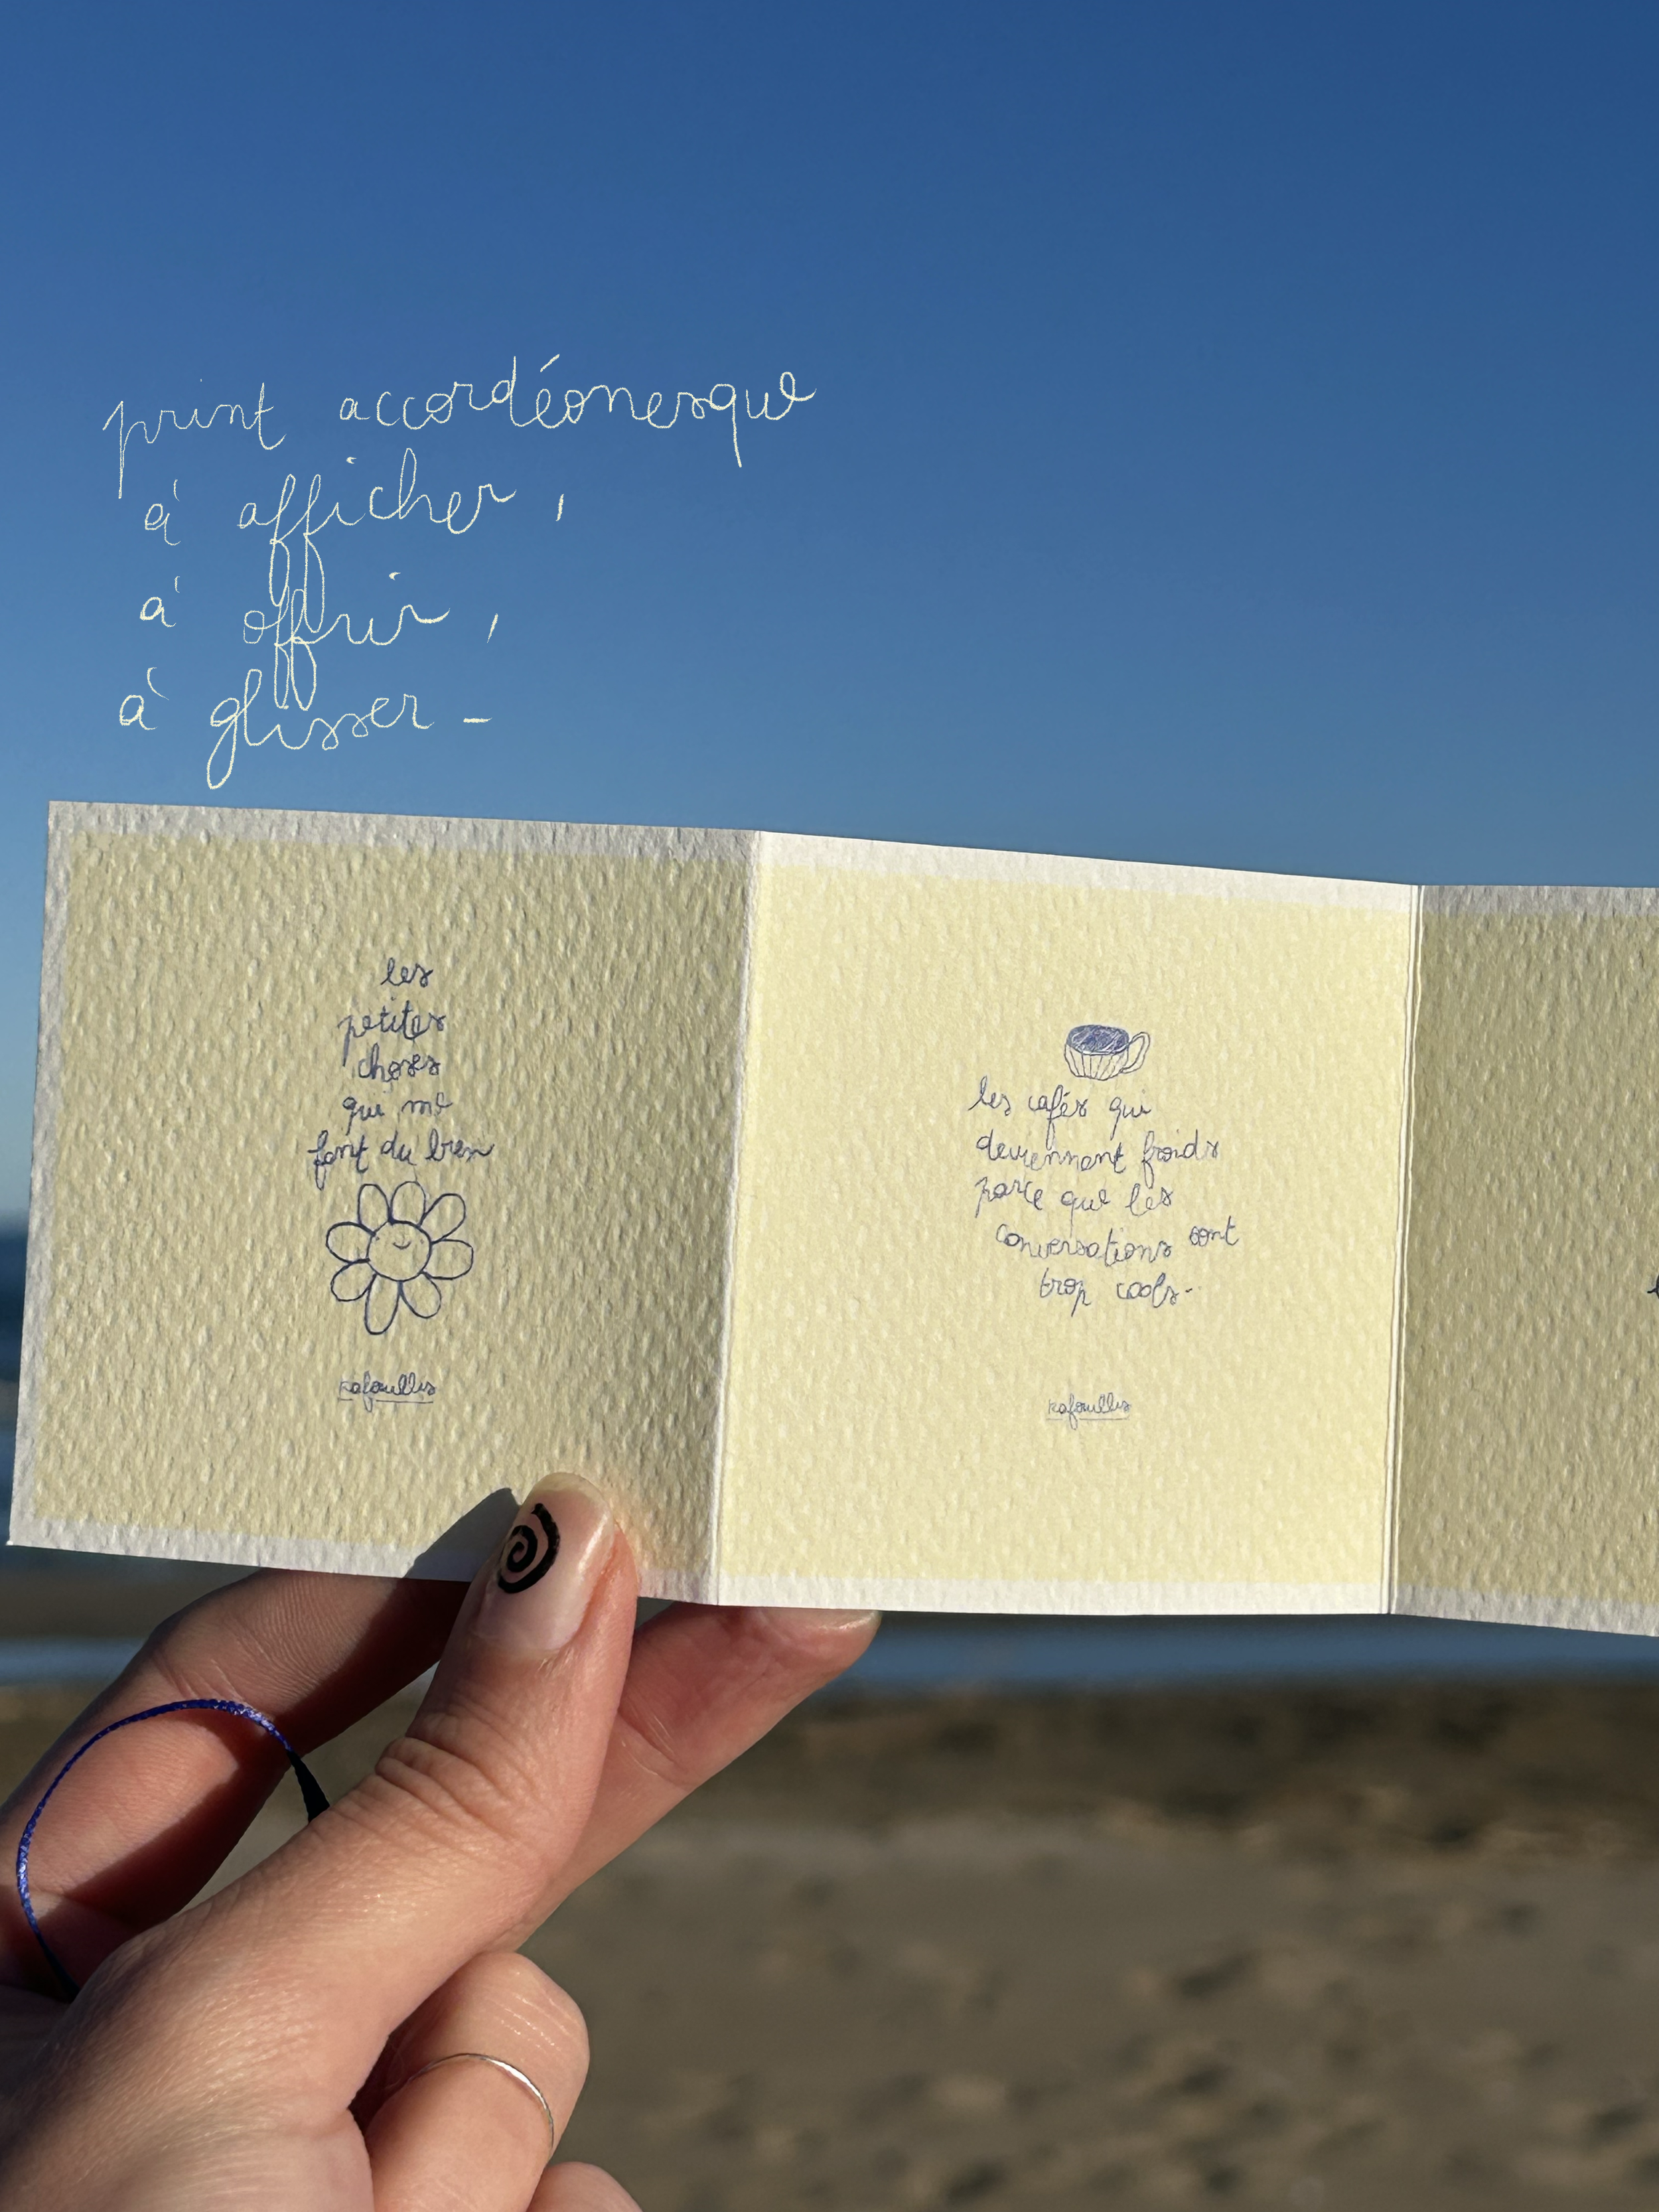 print accordéonesque
à afficher,
à offrir,
à glisser -
les
petites
choses
qui me
font du bien
kafouillis
les cafés qui
deviennent froids
parce que les
conversations sont
trop cools-
kafouillis